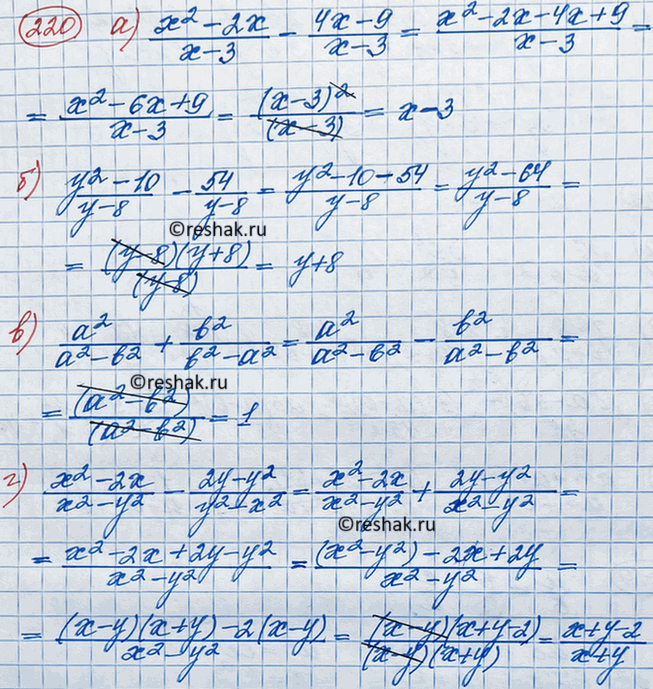 220 а) (x² – 2x)/(x – 3) – (4x – 9)/(x – 3) = (x² – 2x – 4x + 9)/(x – 3) =
= (x² – 6x + 9)/(x – 3) = (x – 3)²/(x – 3) = x – 3
б) (y² – 10)/(y – 8) – 54/(y – 8) = (y² – 10 – 54)/(y – 8) = (y² – 64)/(y – 8) =
©reshak.ru
= (y – 8)(y + 8)/(y – 8) = y + 8
в) a²/(a² – b²) + b²/(b² – a²) = a²/(a² – b²) – b²/(a² – b²) =
©reshak.ru
= (a² – b²)/(a² – b²) = 1
г) (x² – 2x)/(x² – y²) – (2y – y²)/(y² – x²) = (x² – 2x)/(x² – y²) + (2y – y²)/(x² – y²) =
©reshak.ru
= (x² – 2x + 2y – y²)/(x² – y²) = ((x² – y²) – 2x + 2y)/(x² – y²) =
= ((x – y)(x + y) – 2(x – y))/(x² – y²) = (x – y)(x + y – 2)/(x – y)(x + y) = (x + y – 2)/(x + y)